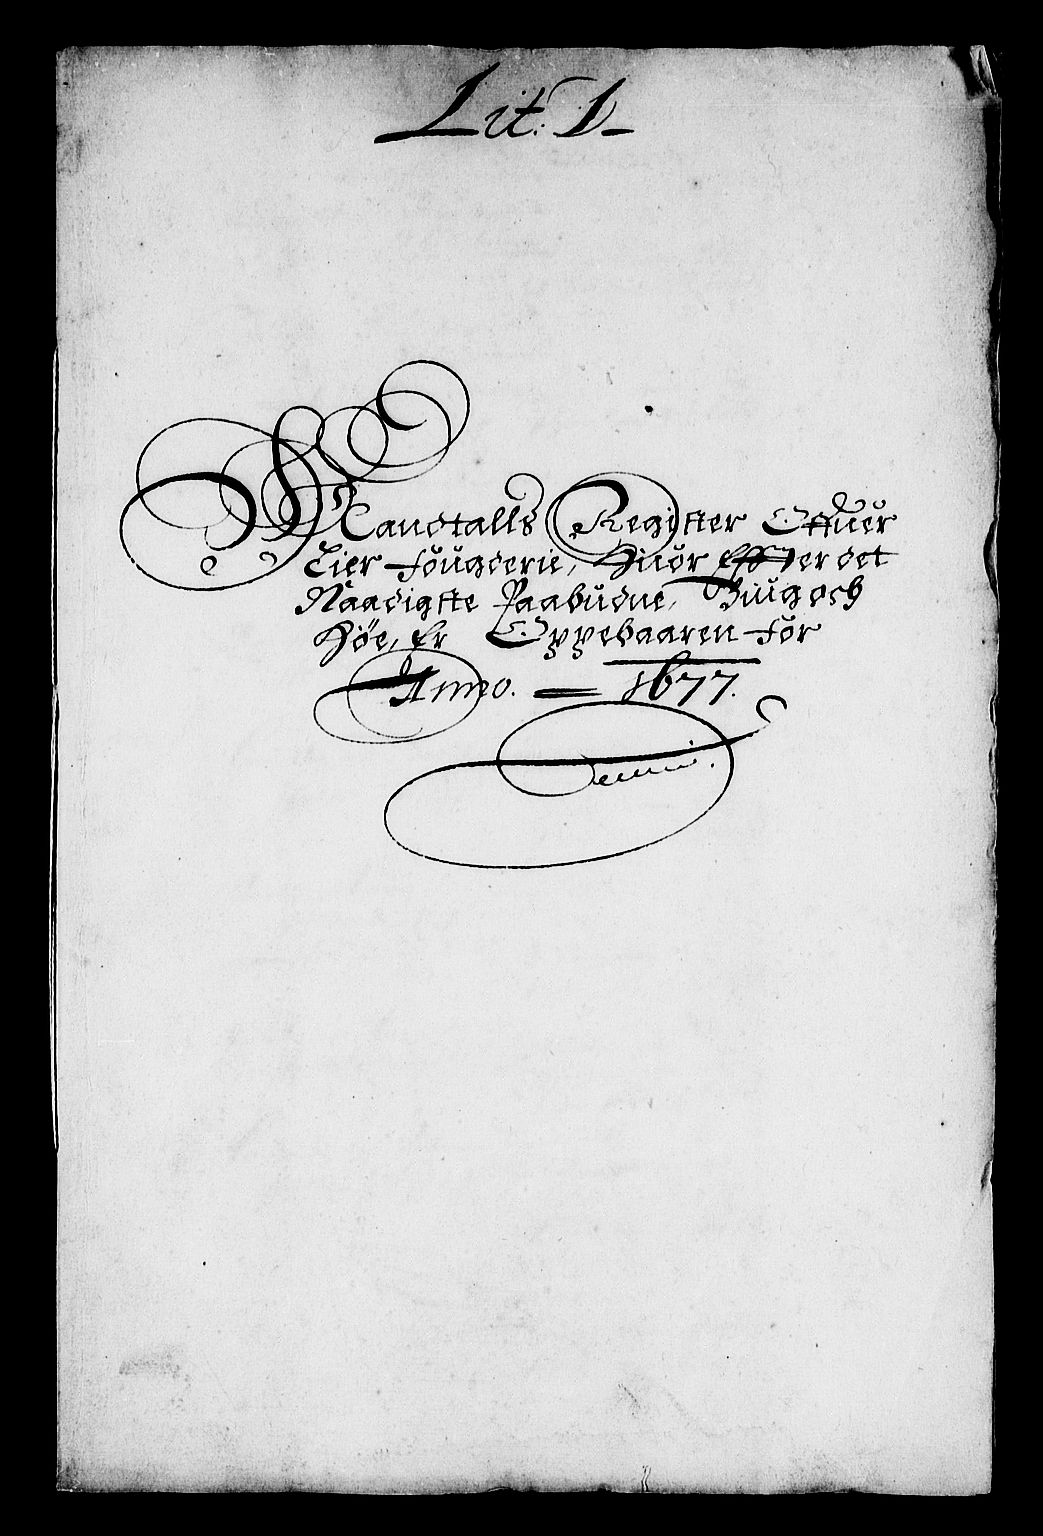 Lit: D
Mandtalls Register Offuer
Lier fougderie, Huor Effter det
Naadigste Paabudne, Biug och
Höe, Er Oppebaaren for
Anno. 1677.